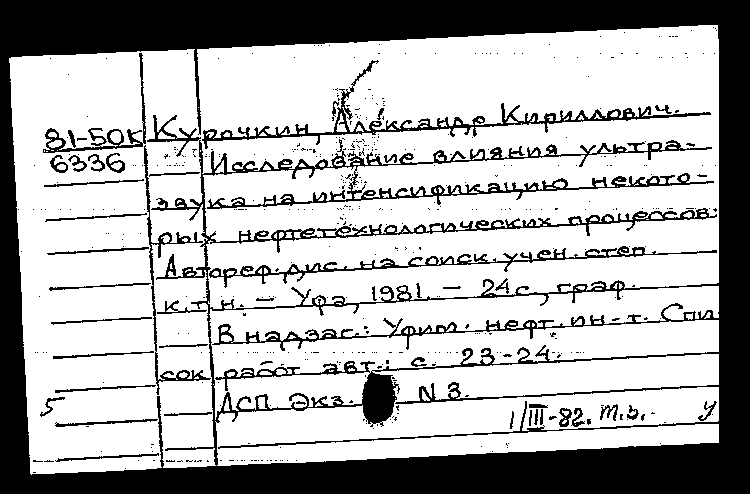 81-50К Курочкин, Александр Кириллович.
6336 Исследование влияния ультра-
звука на интенсификацию некото-
рых нефтетехнологических процессов:
Автореф. дис. на соиск. учен. степ.
к.т.н. - Уфа, 1981. - 24 с., граф.
В надзаг.: Уфим. нефт. ин-т. Спи
сок работ авт.: с. 23-24.
5 ДСП Экз. N 3.
1/III-82. т.ь. у